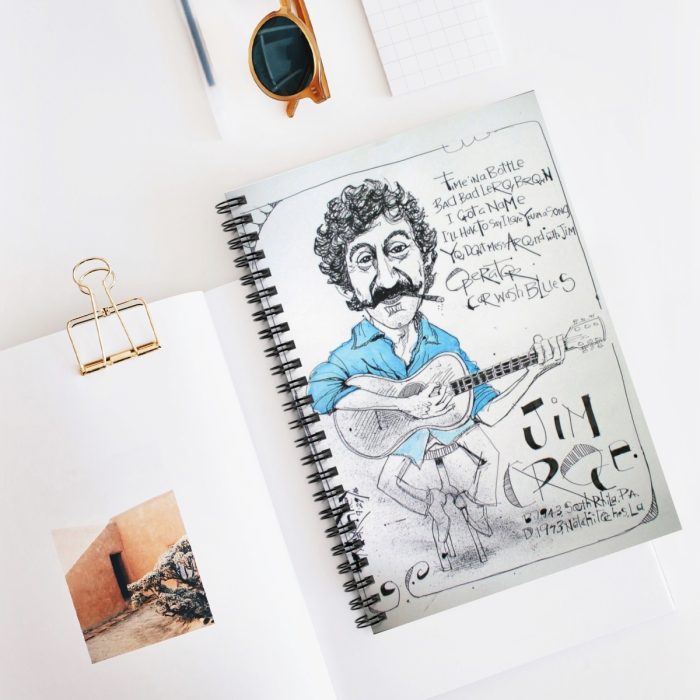 Time in a Bottle
Bad Bad Leroy Brown
I Got a Name
I'll Have To Say I Love You in a Song
You Don't Mess Around with Jim
Operator
Car wash Blues
Jim
Croce.
B 1943 South Phila, P.A.
D. 1973 Natchitoches, La